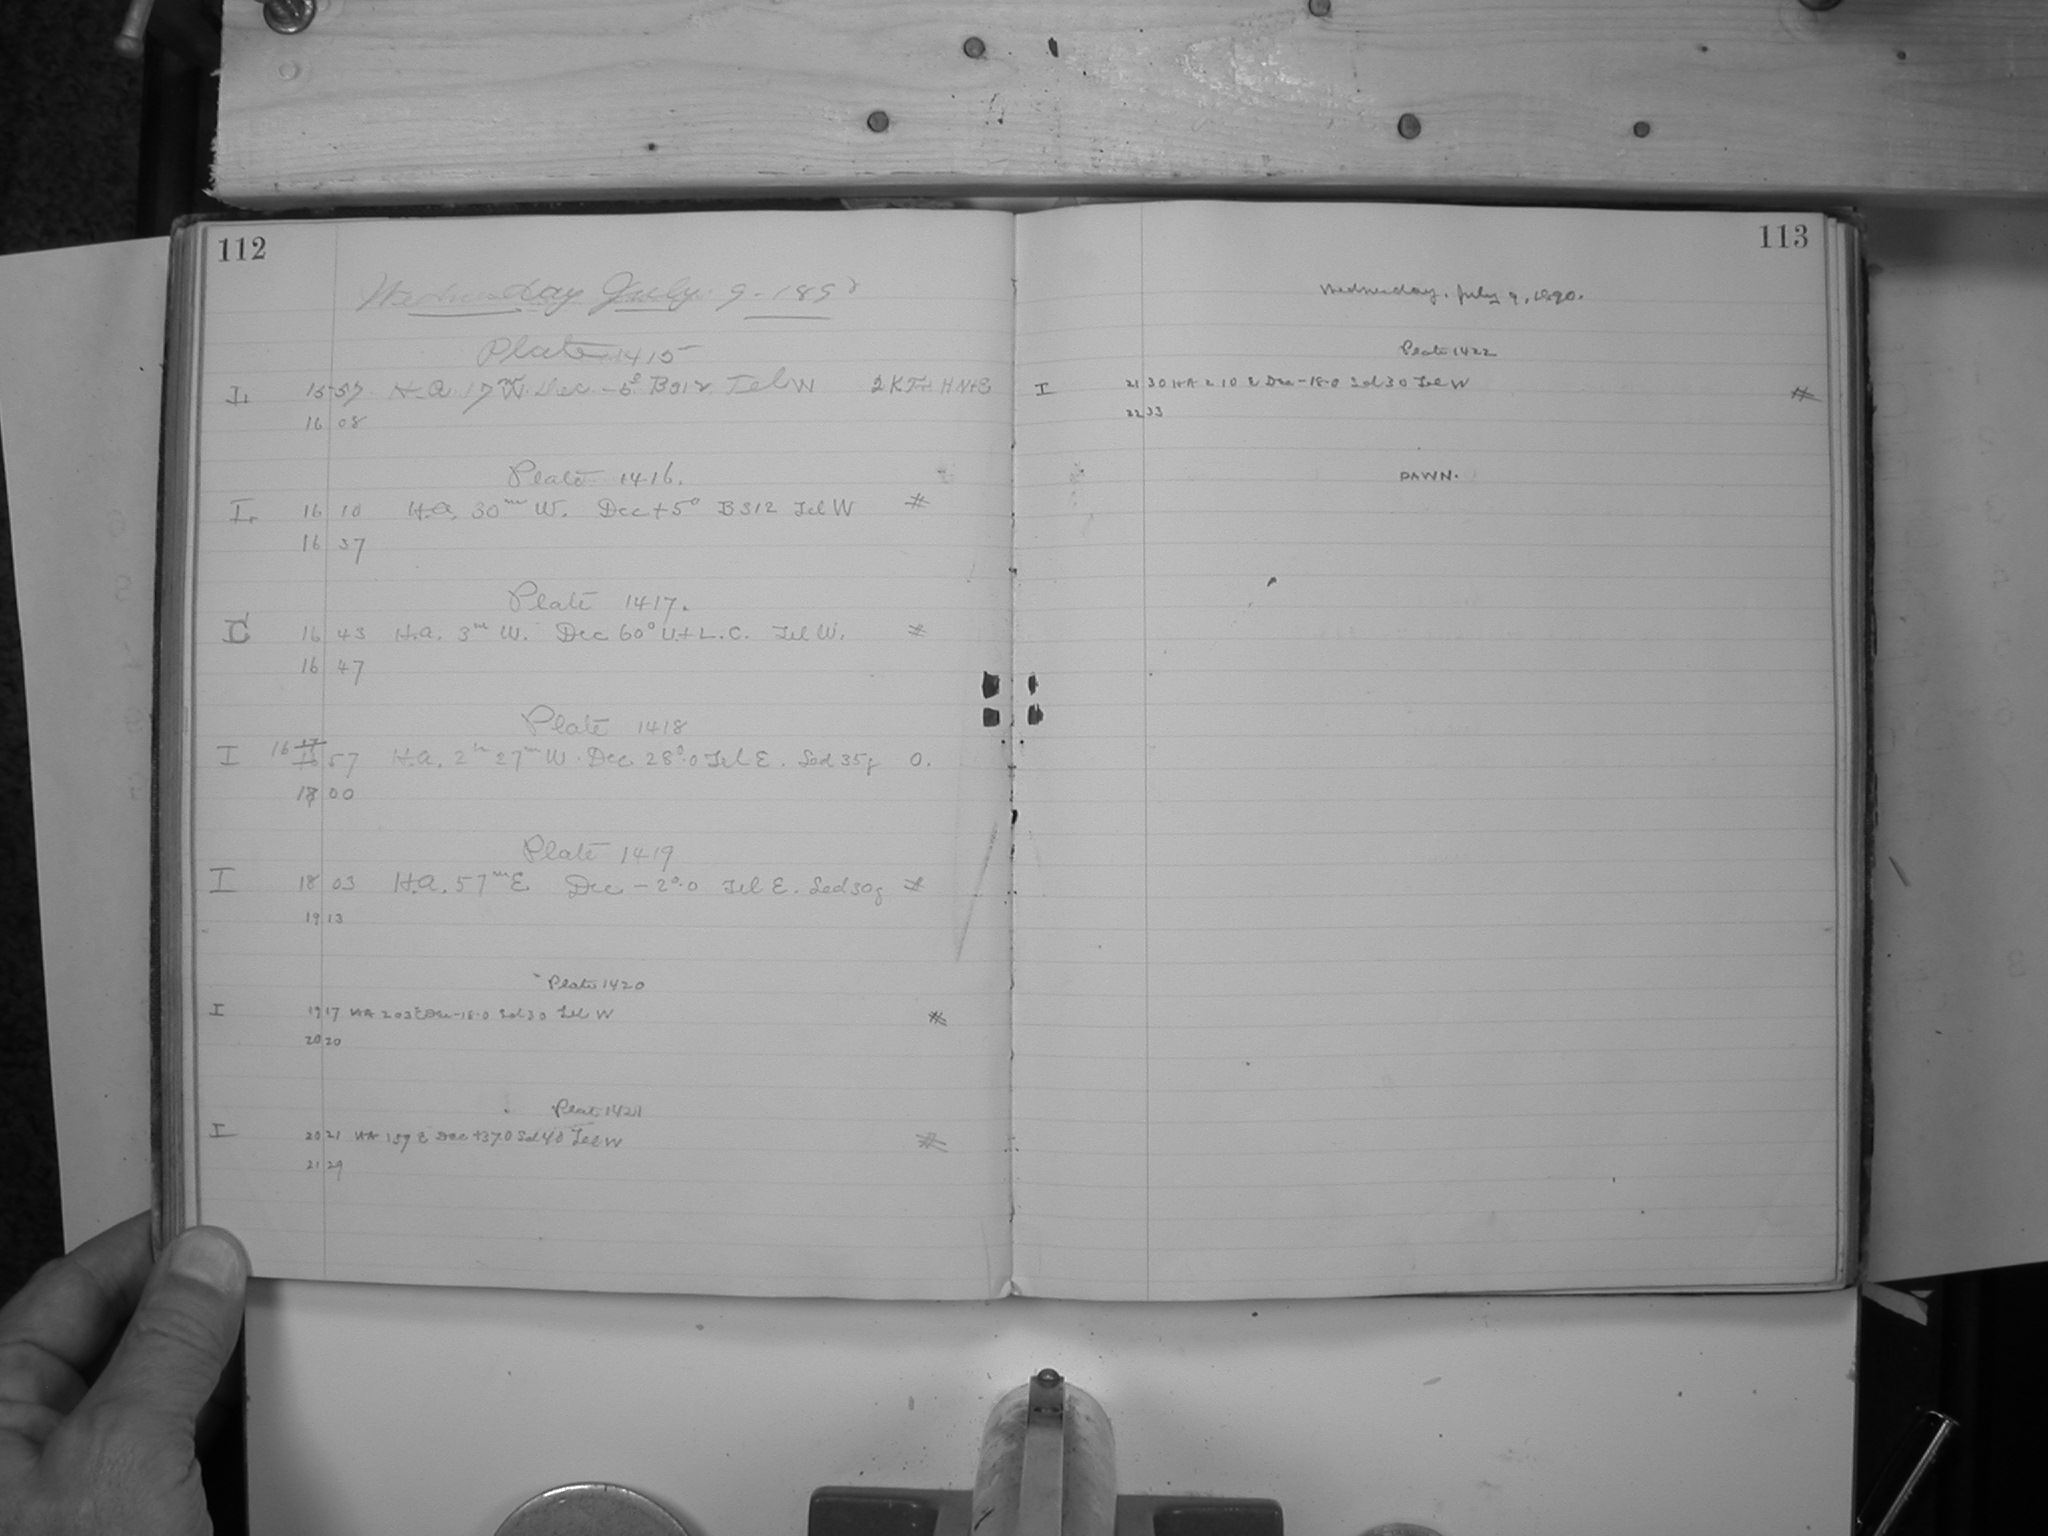 112
Wednesday July 9. 1890
Plate 1415
I. 15 57 H.A. 17 W. Dec. -5° B312 Tel W
16 08
Plate 1416.
I. 16 10 H.A. 30m W. Dec +5° B312 Tel W #
16 37
Plate 1417.
16 43 H.A. 3m W. Dec 60° U.+L.C. Tel W. #
16 47
Plate 1418
I 16 57 H.A. 2h 27m W. Dec 28°.0 Tel E. Sed 35g 0.
18 00
Plate 1419
I 18 03 H.A. 57m E Dec -2°.0 Tel E. Sed 30g #
19 13
Plate 1420
I 19 17 HA 2 03 E Dec -18.0 Sed 30 Tel W #
20 20
Plate 1421
I 20 21 HA 157 E Dec +37.0 Sed 40 Tel W #
21 29
113
Wednesday, July 9, 1890.
Plate 1422
I 21 30 HA 2 10 E Dec -18.0 Sed 30 Tel W #
22 33
DAWN.